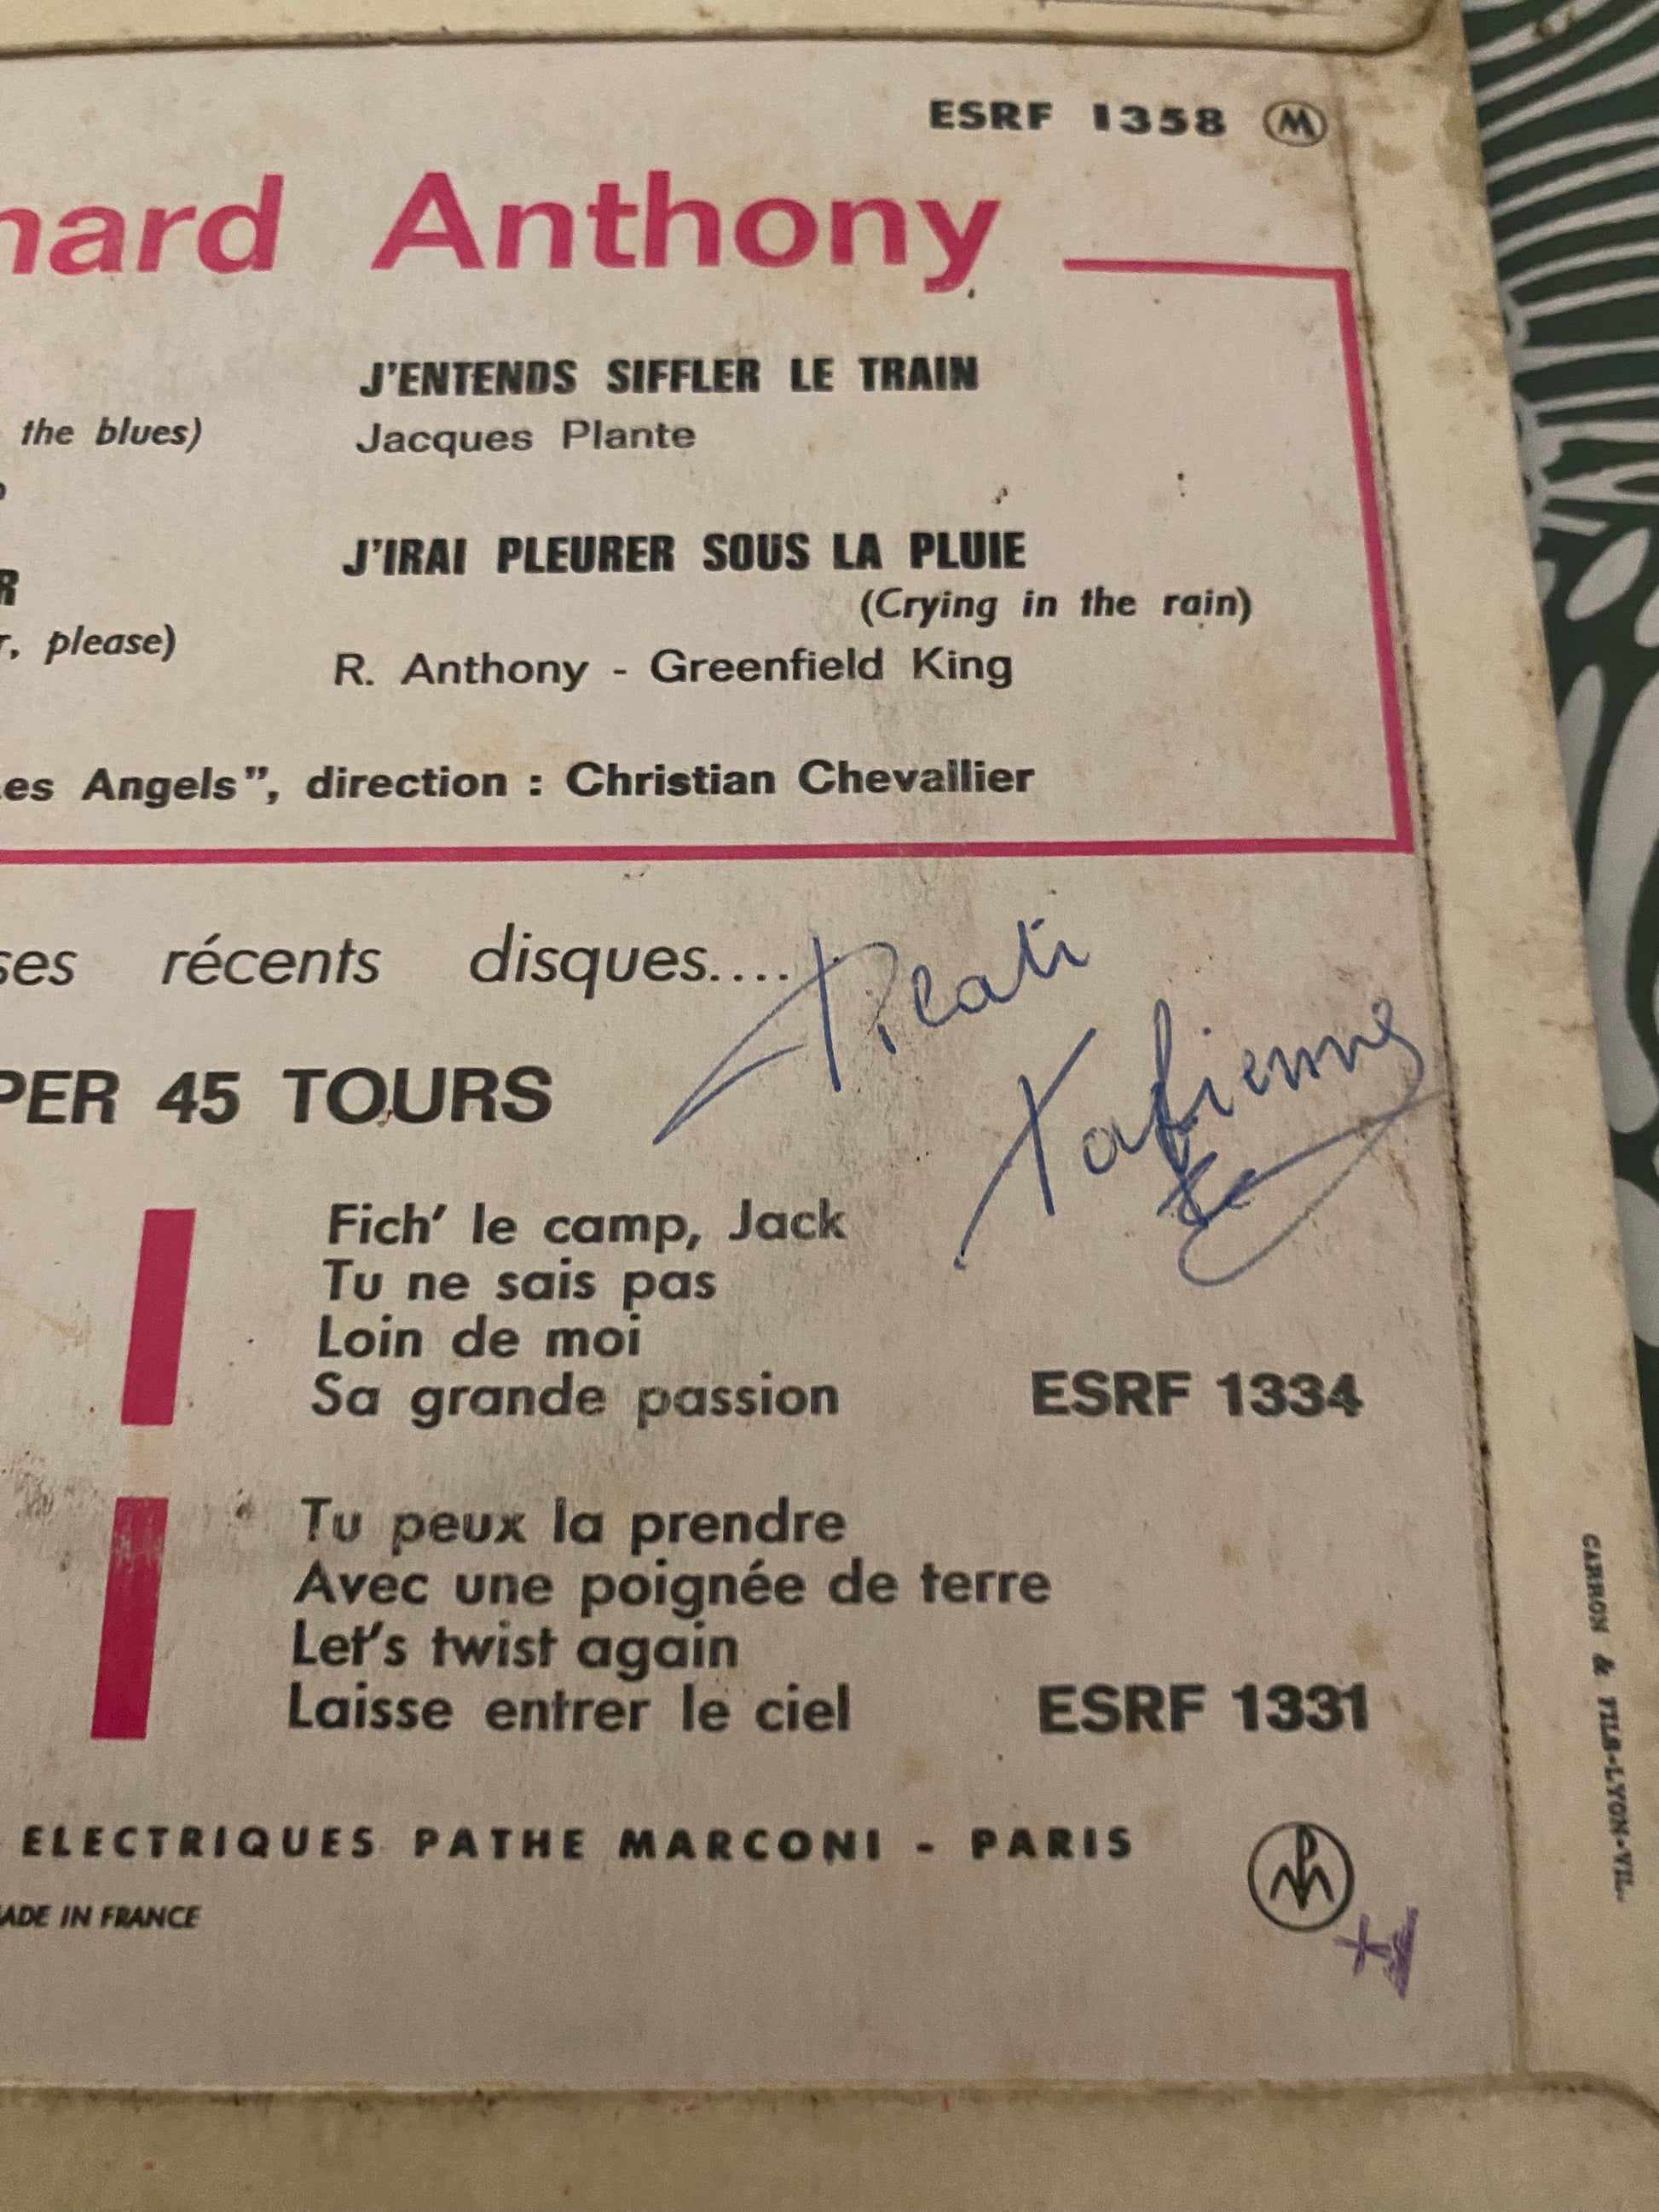 ESRF 1358 M
hard Anthony
the blues)
J'ENTENDS SIFFLER LE TRAIN
Jacques Plante
R
r, please)
J'IRAI PLEURER SOUS LA PLUIE
(Crying in the rain)
R. Anthony - Greenfield King
Les Angels", direction : Christian Chevallier
ses récents disques....
PER 45 TOURS
Fabienne
Fich' le camp, Jack
Tu ne sais pas
Loin de moi
Sa grande passion ESRF 1334
Tu peux la prendre
Avec une poignée de terre
Let's twist again
Laisse entrer le ciel ESRF 1331
ELECTRIQUES PATHE MARCONI - PARIS
MADE IN FRANCE
CARRON & FILS-LYON-VIL.